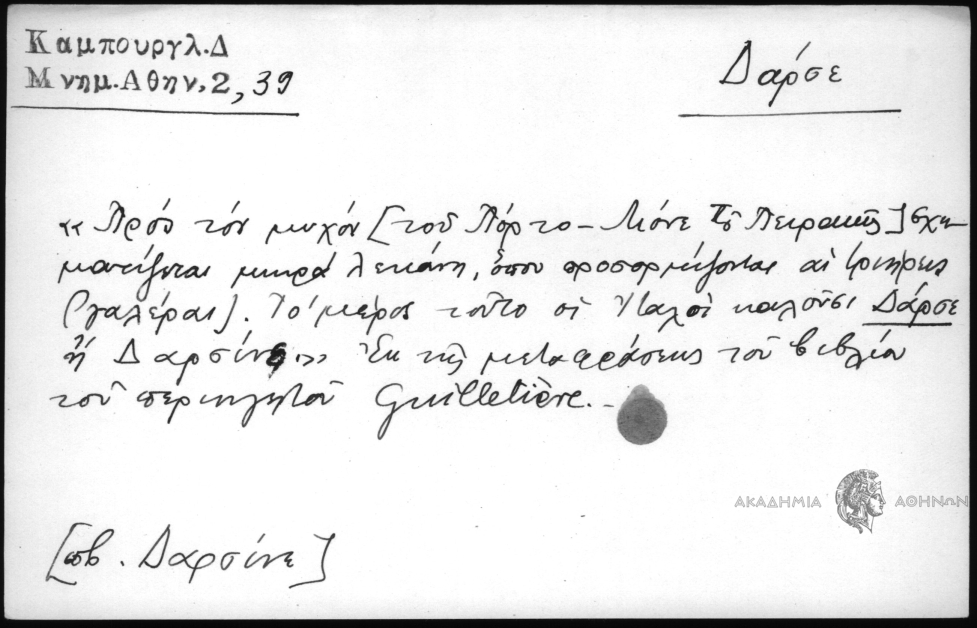 Καμπουργλ.Δ
Μνημ.Αθην.2, 39
Δάρσε
«Πρὸς τὸν μυχόν [τοῦ Πόρτο-Λιόνε τοῦ Πειραιῶς] σχη-
ματίζεται μικρὰ λεκάνη, ὅπου προσορμίζονται αἱ τριήρεις
(γαλέραι). Τὸ μέρος τοῦτο οἱ Ἰταλοὶ καλοῦσι Δάρσε
ἢ Δαρσίνε». Ἐκ τῆς μεταφράσεως τοῦ βιβλίου
τοῦ περιηγητοῦ Guilletière.-
ΑΚΑΔΗΜΙΑ ΑΘΗΝΩΝ
[πβ. Δαρσίνε]